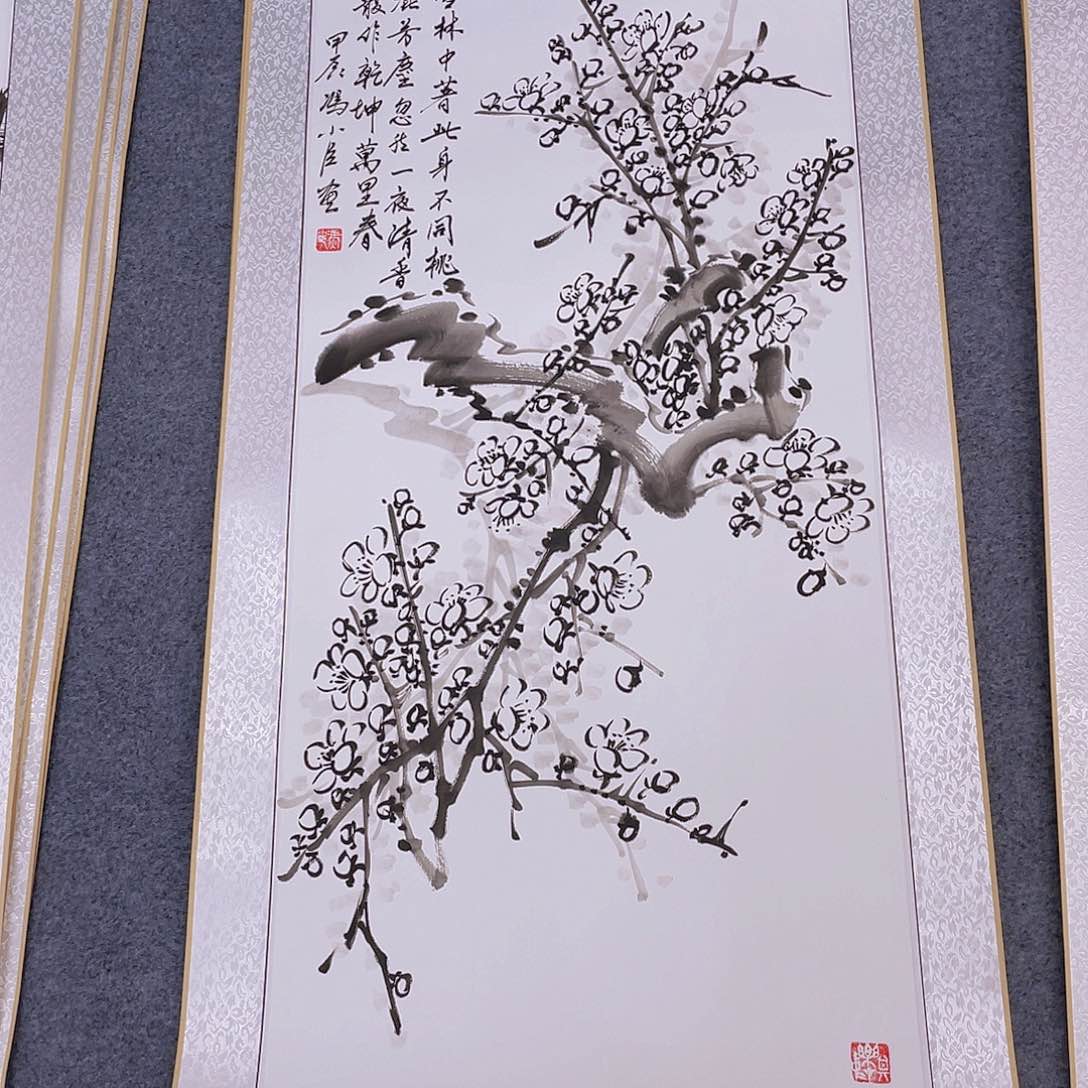 雪林中著此身不同桃
混芳塵忽然一夜清香
散作乾坤萬里春
甲辰馮小畫